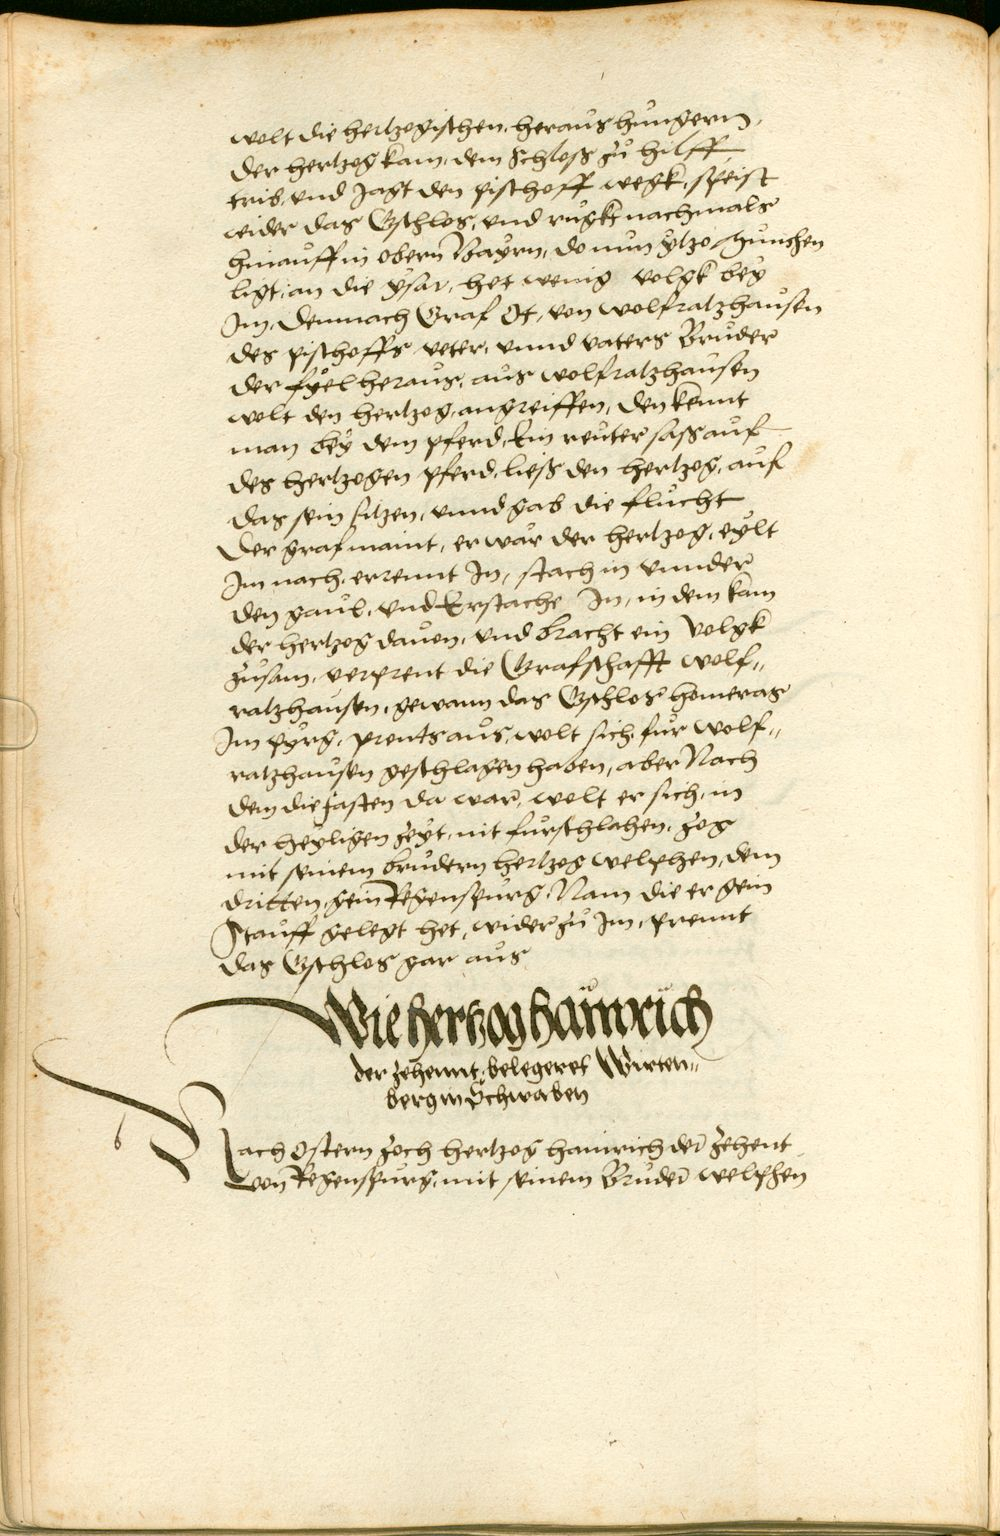 wolt die hertzogischen, heraus hungern,
der hertzog kam, dem Schloß zů hilff
trib, und Jagt den pischoff wegk, speist
wider das Gschlos, und rugkt nachmals
hinauff in obern Bayrn, do nun ytzo Munchen
ligt, an die ysar, het wenig volgk bey
Im, Demnach Graf Ot, von wolfratzhausen
des pischoffs veter, unnd vaters Bruder
der fyel heraus, aus wolfratzhausen
wolt den hertzog, angreiffen, den kennt
man bey dem pferd, Ein reuter sass auf
des hertzogen pferd, ließ den hertzog, auf
das sein sitzen, unnd gab die flucht
Der graf maint, er war der hertzog, eylt
Im nach, errennt In, stach in unnder
den gaul, und Erstache In, in dem kam
der hertzog davon, und bracht ein Volgk
zusam, verprent die Grafschafft wolf„
ratzhausen, gewann das Gschlos homeras
Im pyrg, prents aus, wolt sich fur wolf„
ratzhausen geschlagen haben, aber Nach
dem die fasten da war, wolt er sich, in
der heyligen Zeyt, nit furschlahen, Zog
mit seinem brudern hertzog welphen, dem
dritten, gein Regenspurg, Nam die er gein
Stauff gelegt het, wider zu Im, prennt
das Gschlos gar aus
Wie hertzog hainrich
der zehennt, belegeret Wirten„
berg in Schwaben
Nach Ostern zoch hertzog hainrich der zehent
von Regenspurg, mit seinem Bruder welphen